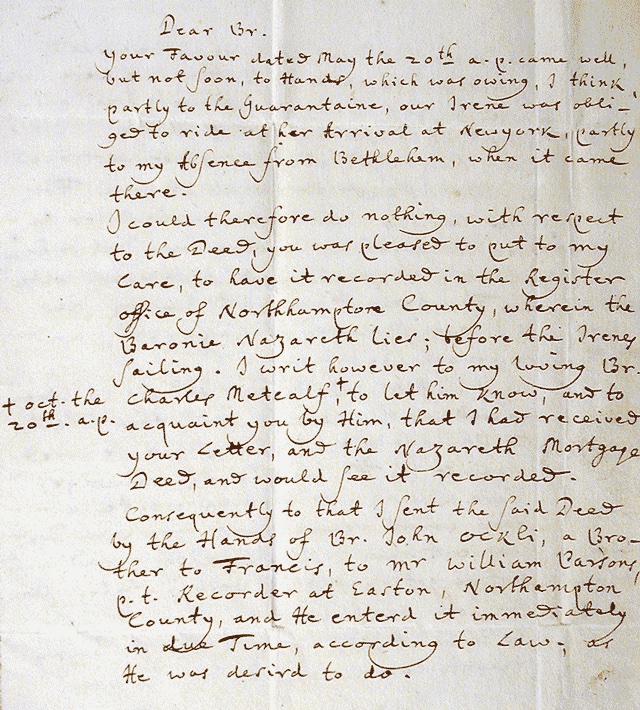 Dear Br.
Your Favour dated May the 20th a. p. came well,
but not soon, to Hands, which was owing, I think,
partly to the Quarantaine, our Irene was obli-
ged to ride at her Arrival at Newyork, partly
to my Absence from Bethlehem, when it came
there.
I could therefore do nothing, with respect
to the Deed, you was pleased to put to my
Care, to have it recorded in the Register
office of Northhampton County, wherein the
Baronie Nazareth lies; before the Irenes
sailing. I writ however to my loving Br.
Charles Metcalf,† to let him know, and to
† oct. the
20th. a. p.
acquaint you by Him, that I had received
your Letter, and the Nazareth Mortgage
Deed, and would see it recorded.
Consequently to that I sent the said Deed
by the Hands of Br. John Ockli, a Bro-
ther to Francis, to mr William Parsons,
p. t. Recorder at Easton, Northampton
County, and He enterd it immediately
in due Time, according to Law; as
He was desird to do.